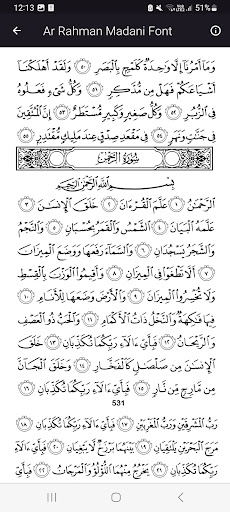 12:13 51%
Ar Rahman Madani Font
وَمَا أَمْرُنَا إِلَّا وَٰحِدَةٌ كَلَمْحٍ بِالْبَصَرِ ٥٠ وَلَقَدْ أَهْلَكْنَا
أَشْيَاعَكُمْ فَهَلْ مِن مُّدَّكِرٍ ٥١ وَكُلُّ شَيْءٍ فَعَلُوهُ
فِي الزُّبُرِ ٥٢ وَكُلُّ صَغِيرٍ وَكَبِيرٍ مُّسْتَطَرٌ ٥٣ إِنَّ الْمُتَّقِينَ
فِي جَنَّٰتٍ وَنَهَرٍ ٥٤ فِي مَقْعَدِ صِدْقٍ عِندَ مَلِيكٍ مُّقْتَدِرٍ ٥٥
سُورَةُ الرَّحْمَٰن
بِسْمِ اللَّهِ الرَّحْمَٰنِ الرَّحِيمِ
الرَّحْمَٰنُ ١ عَلَّمَ الْقُرْءَانَ ٢ خَلَقَ الْإِنسَٰنَ ٣
عَلَّمَهُ الْبَيَانَ ٤ الشَّمْسُ وَالْقَمَرُ بِحُسْبَانٍ ٥ وَالنَّجْمُ
وَالشَّجَرُ يَسْجُدَانِ ٦ وَالسَّمَاءَ رَفَعَهَا وَوَضَعَ الْمِيزَانَ
٧ أَلَّا تَطْغَوْا فِي الْمِيزَانِ ٨ وَأَقِيمُوا الْوَزْنَ بِالْقِسْطِ
وَلَا تُخْسِرُوا الْمِيزَانَ ٩ وَالْأَرْضَ وَضَعَهَا لِلْأَنَامِ
١٠ فِيهَا فَٰكِهَةٌ وَالنَّخْلُ ذَاتُ الْأَكْمَامِ ١١ وَالْحَبُّ ذُو الْعَصْفِ
وَالرَّيْحَانُ ١٢ فَبِأَيِّ ءَالَاءِ رَبِّكُمَا تُكَذِّبَانِ ١٣ خَلَقَ
الْإِنسَٰنَ مِن صَلْصَٰلٍ كَالْفَخَّارِ ١٤ وَخَلَقَ الْجَانَّ
مِن مَّارِجٍ مِّن نَّارٍ ١٥ فَبِأَيِّ ءَالَاءِ رَبِّكُمَا تُكَذِّبَانِ ١٦
531
رَبُّ الْمَشْرِقَيْنِ وَرَبُّ الْمَغْرِبَيْنِ ١٧ فَبِأَيِّ ءَالَاءِ رَبِّكُمَا تُكَذِّبَانِ ١٨
مَرَجَ الْبَحْرَيْنِ يَلْتَقِيَانِ ١٩ بَيْنَهُمَا بَرْزَخٌ لَّا يَبْغِيَانِ ٢٠ فَبِأَيِّ ءَالَاءِ
رَبِّكُمَا تُكَذِّبَانِ ٢١ يَخْرُجُ مِنْهُمَا اللُّؤْلُؤُ وَالْمَرْجَانُ ٢٢ فَبِأَيِّ ءَالَاءِ